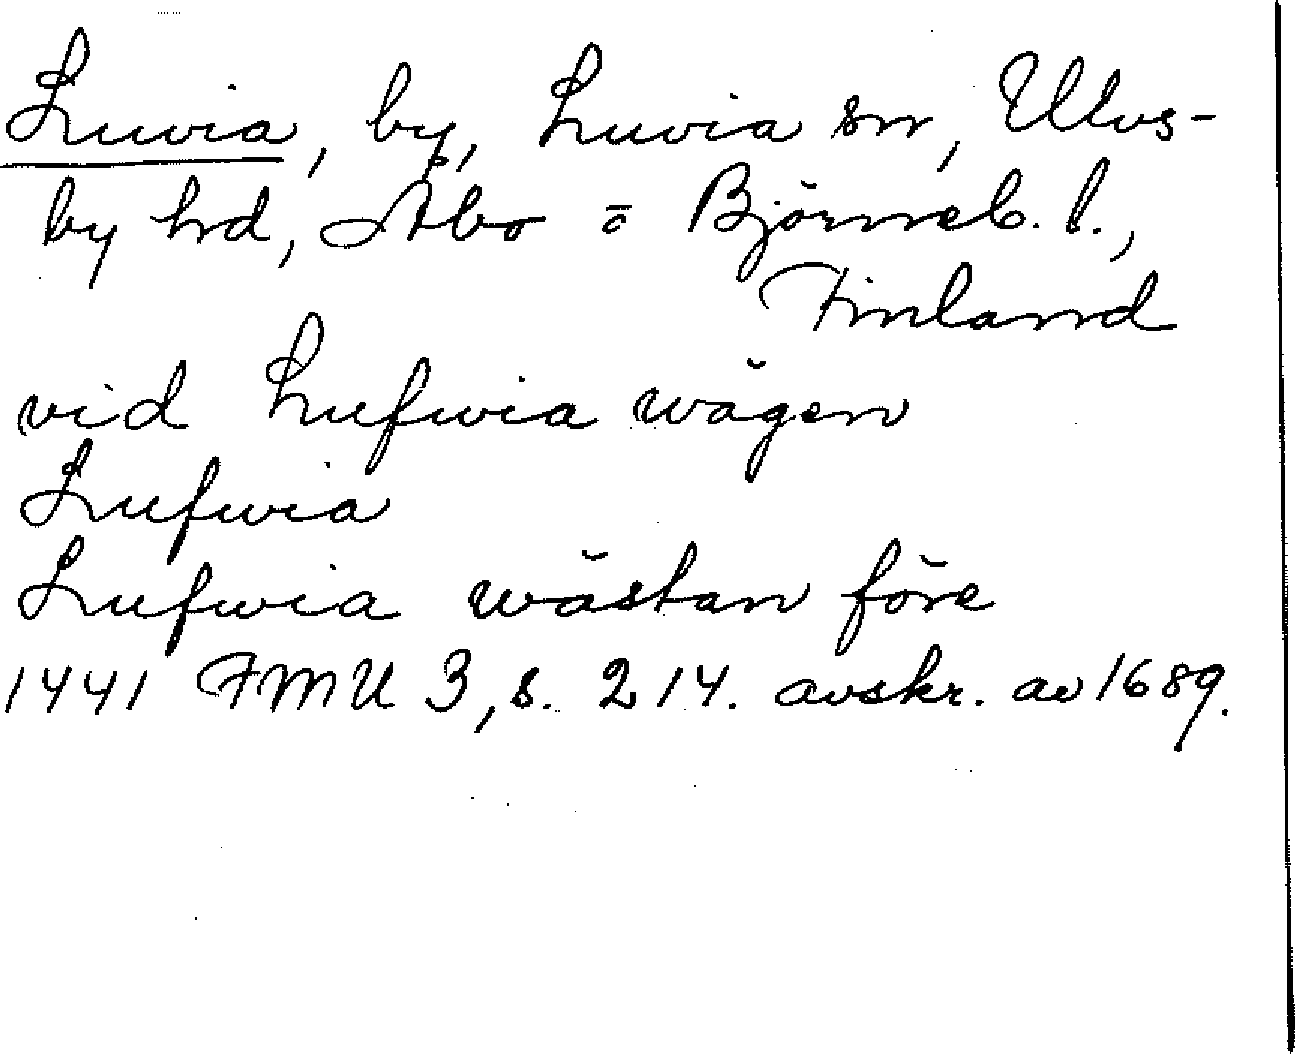 Luvia, by, Luvia sn, Ulvs-
by hd, Åbo o Björneb. l.,
Finland
vid Lufwia wägen
Lufwia
Lufwia wästan före
1441 FMU 3, s. 214. avskr. av 1689.